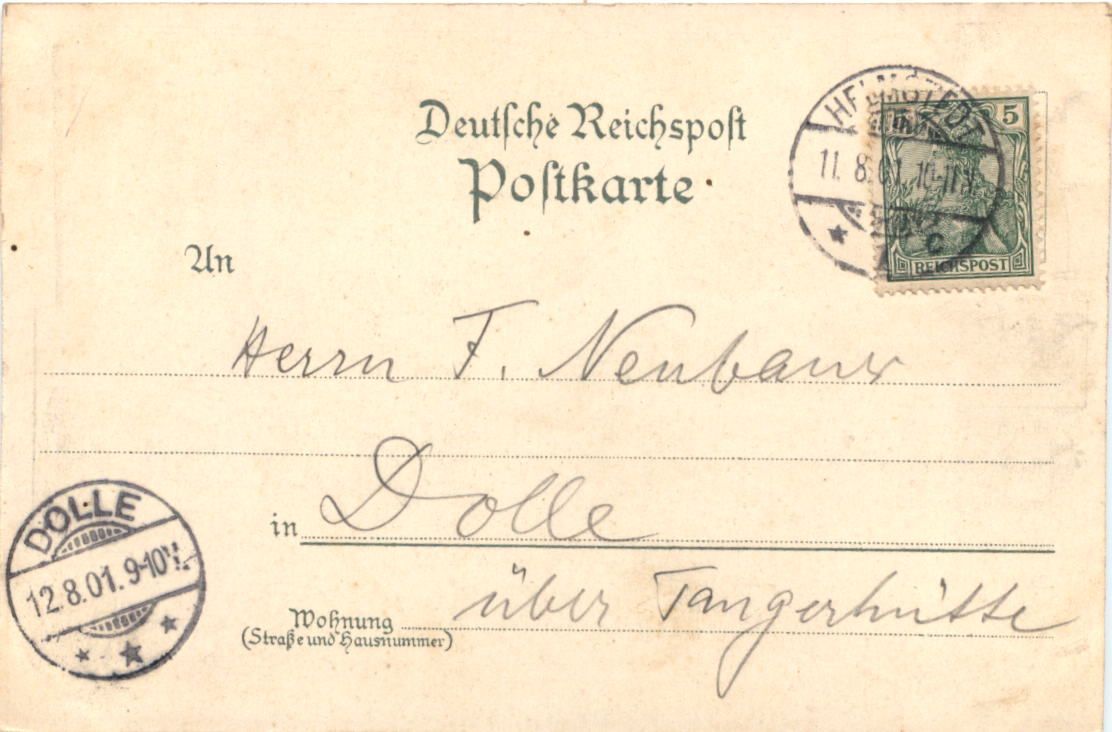 Deutsche Reichspost
Postkarte
HELMSTEDT
11. 8. 01
* c
5
REICHSPOST
An
Herrn F. Neubauer
in Dolle
Wohnung
(Straße und Hausnummer)
über Tangerhütte
DOLLE
12.8.01. 9-10V.